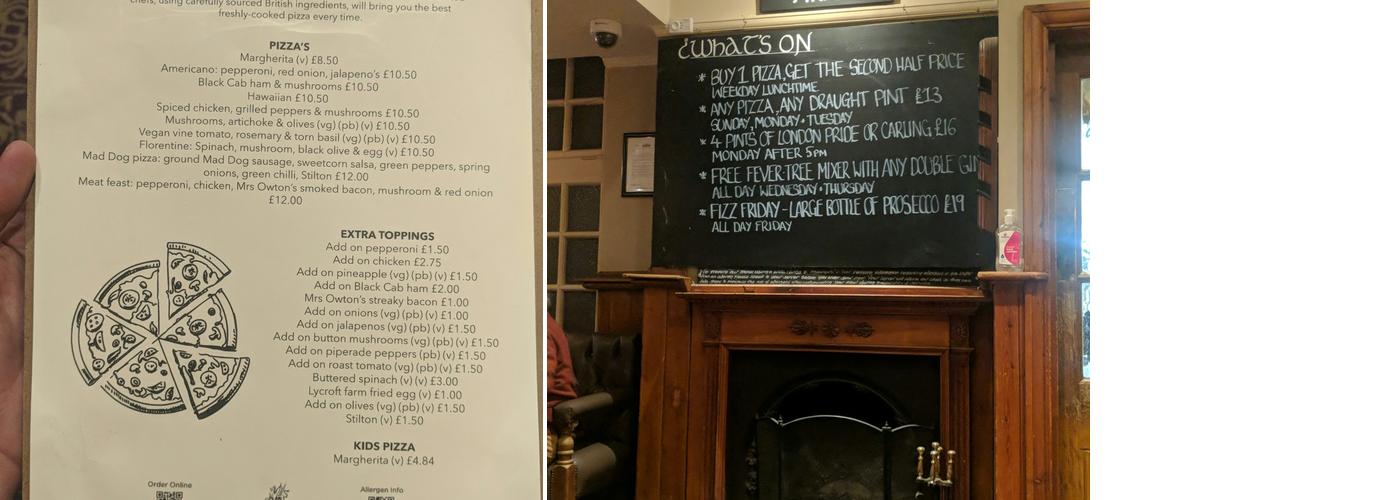 chefs, using carefully sourced British ingredients, will bring you the best
freshly-cooked pizza every time.
PIZZA'S
Margherita (v) £8.50
Americano: pepperoni, red onion, jalapeno's £10.50
Black Cab ham & mushrooms £10.50
Hawaiian £10.50
Spiced chicken, grilled peppers & mushrooms £10.50
Mushrooms, artichoke & olives (vg) (pb) (v) £10.50
Vegan vine tomato, rosemary & torn basil (vg) (pb) (v) £10.50
Florentine: Spinach, mushroom, black olive & egg (v) £10.50
Mad Dog pizza: ground Mad Dog sausage, sweetcorn salsa, green peppers, spring
onions, green chilli, Stilton £12.00
Meat feast: pepperoni, chicken, Mrs Owton's smoked bacon, mushroom & red onion
£12.00
EXTRA TOPPINGS
Add on pepperoni £1.50
Add on chicken £2.75
Add on pineapple (vg) (pb) (v) £1.50
Add on Black Cab ham £2.00
Mrs Owton's streaky bacon £1.00
Add on onions (vg) (pb) (v) £1.00
Add on jalapenos (vg) (pb) (v) £1.50
Add on button mushrooms (vg) (pb) (v) £1.50
Add on piperade peppers (vg) (pb) (v) £1.50
Add on roast tomato (vg) (pb) (v) £1.50
Buttered spinach (v) (v) £3.00
Lycroft farm fried egg (v) £1.00
Add on olives (vg) (pb) (v) £1.50
Stilton (v) £1.50
KIDS PIZZA
Margherita (v) £4.84
Order Online
Allergen Info
¿WHAT'S ON
* BUY 1 PIZZA, GET THE SECOND HALF PRICE
WEEKDAY LUNCHTIME
* ANY PIZZA, ANY DRAUGHT PINT £13
SUNDAY, MONDAY • TUESDAY
* 4 PINTS OF LONDON PRIDE OR CARLING £16
MONDAY AFTER 5PM
* FREE FEVER-TREE MIXER WITH ANY DOUBLE GIN
ALL DAY WEDNESDAY • THURSDAY
* FIZZ FRIDAY - LARGE BOTTLE OF PROSECCO £19
ALL DAY FRIDAY